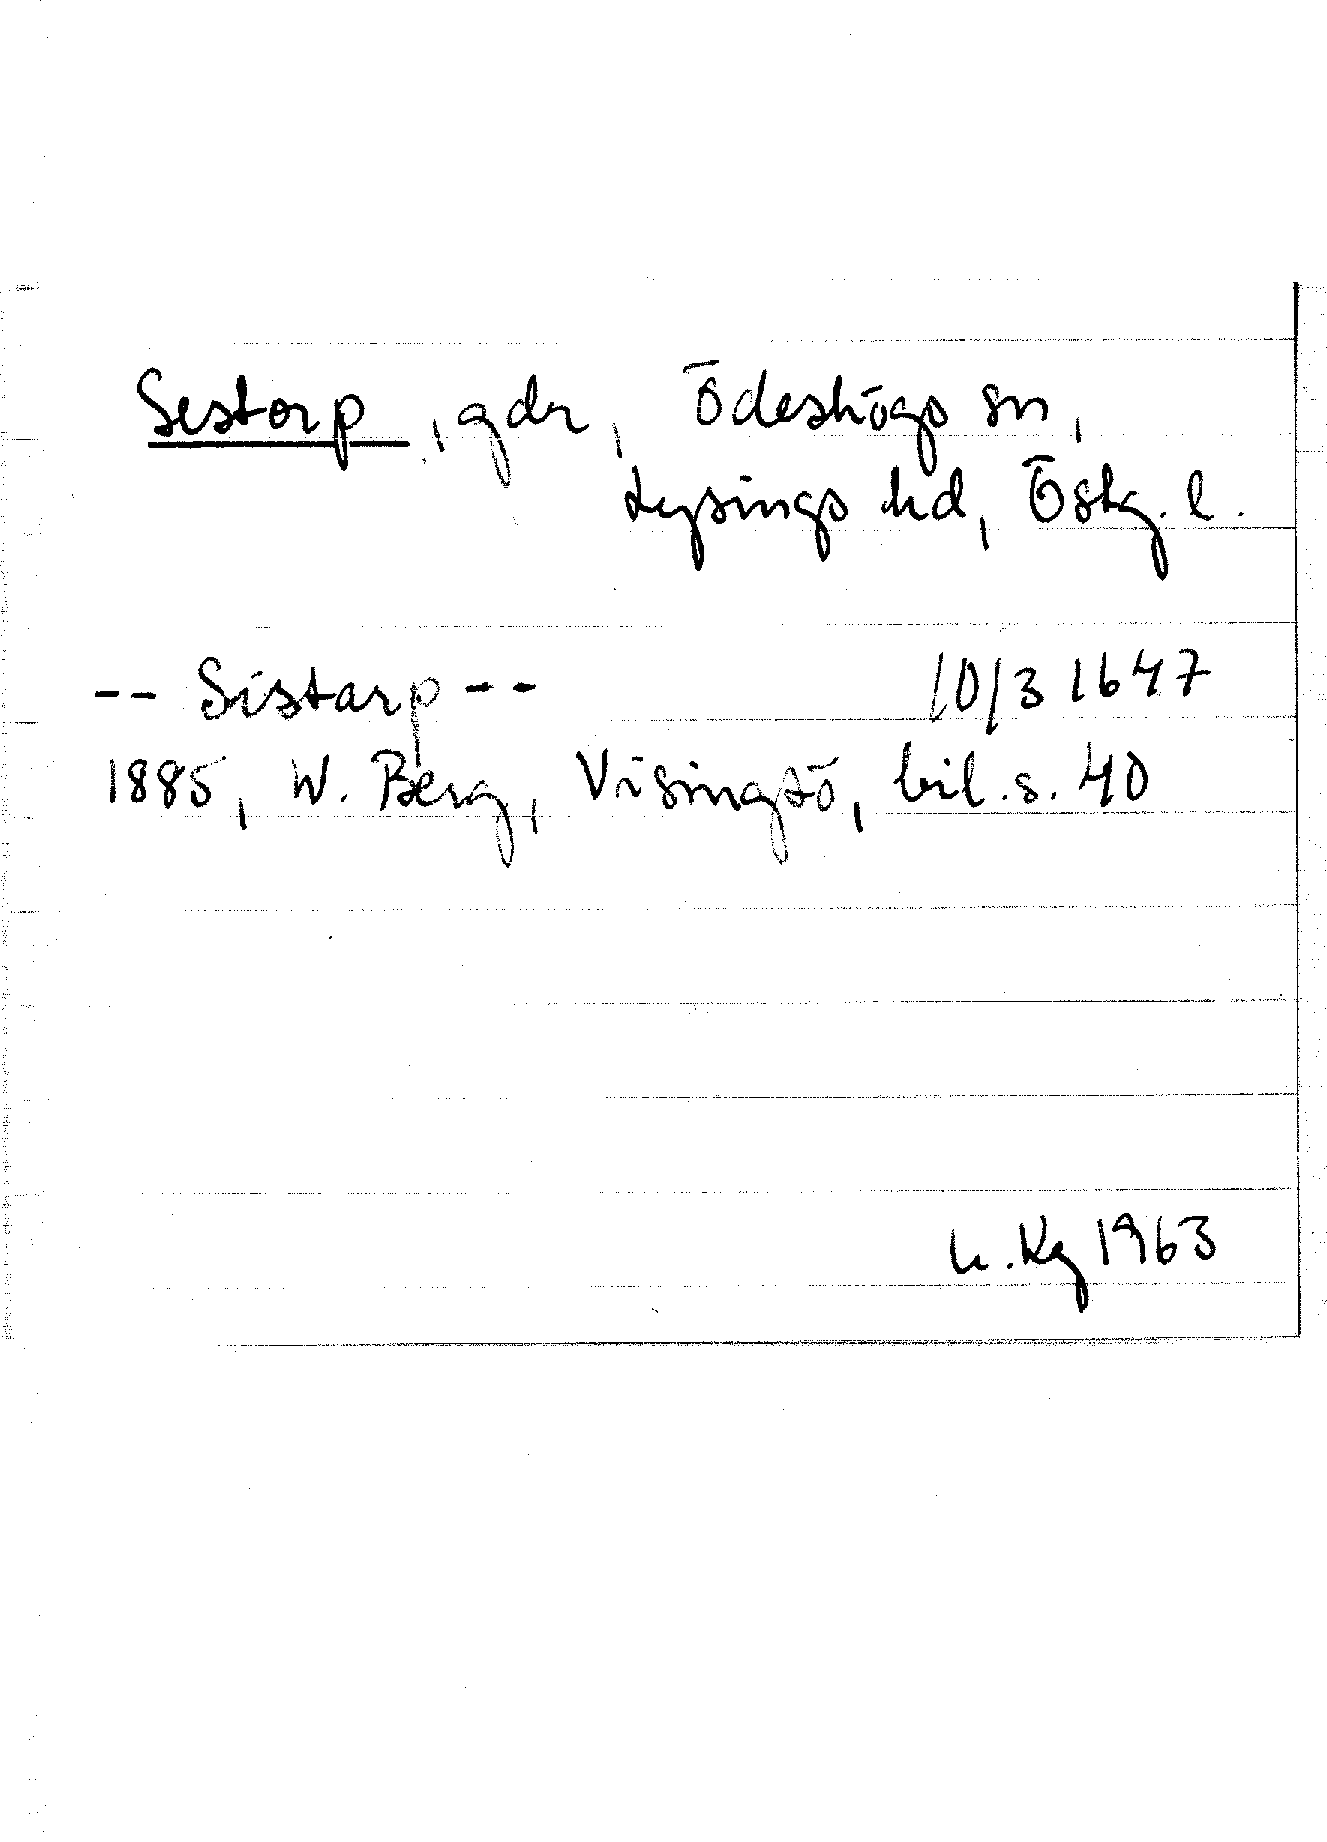 Sestorp, gdr, Ödeshögs sn,
Lysings hd, Östg. l.
-- Sistarp -- 10/3 1647
1885, W. Berg, Visingsö, bil. s. 40
Kg 1963